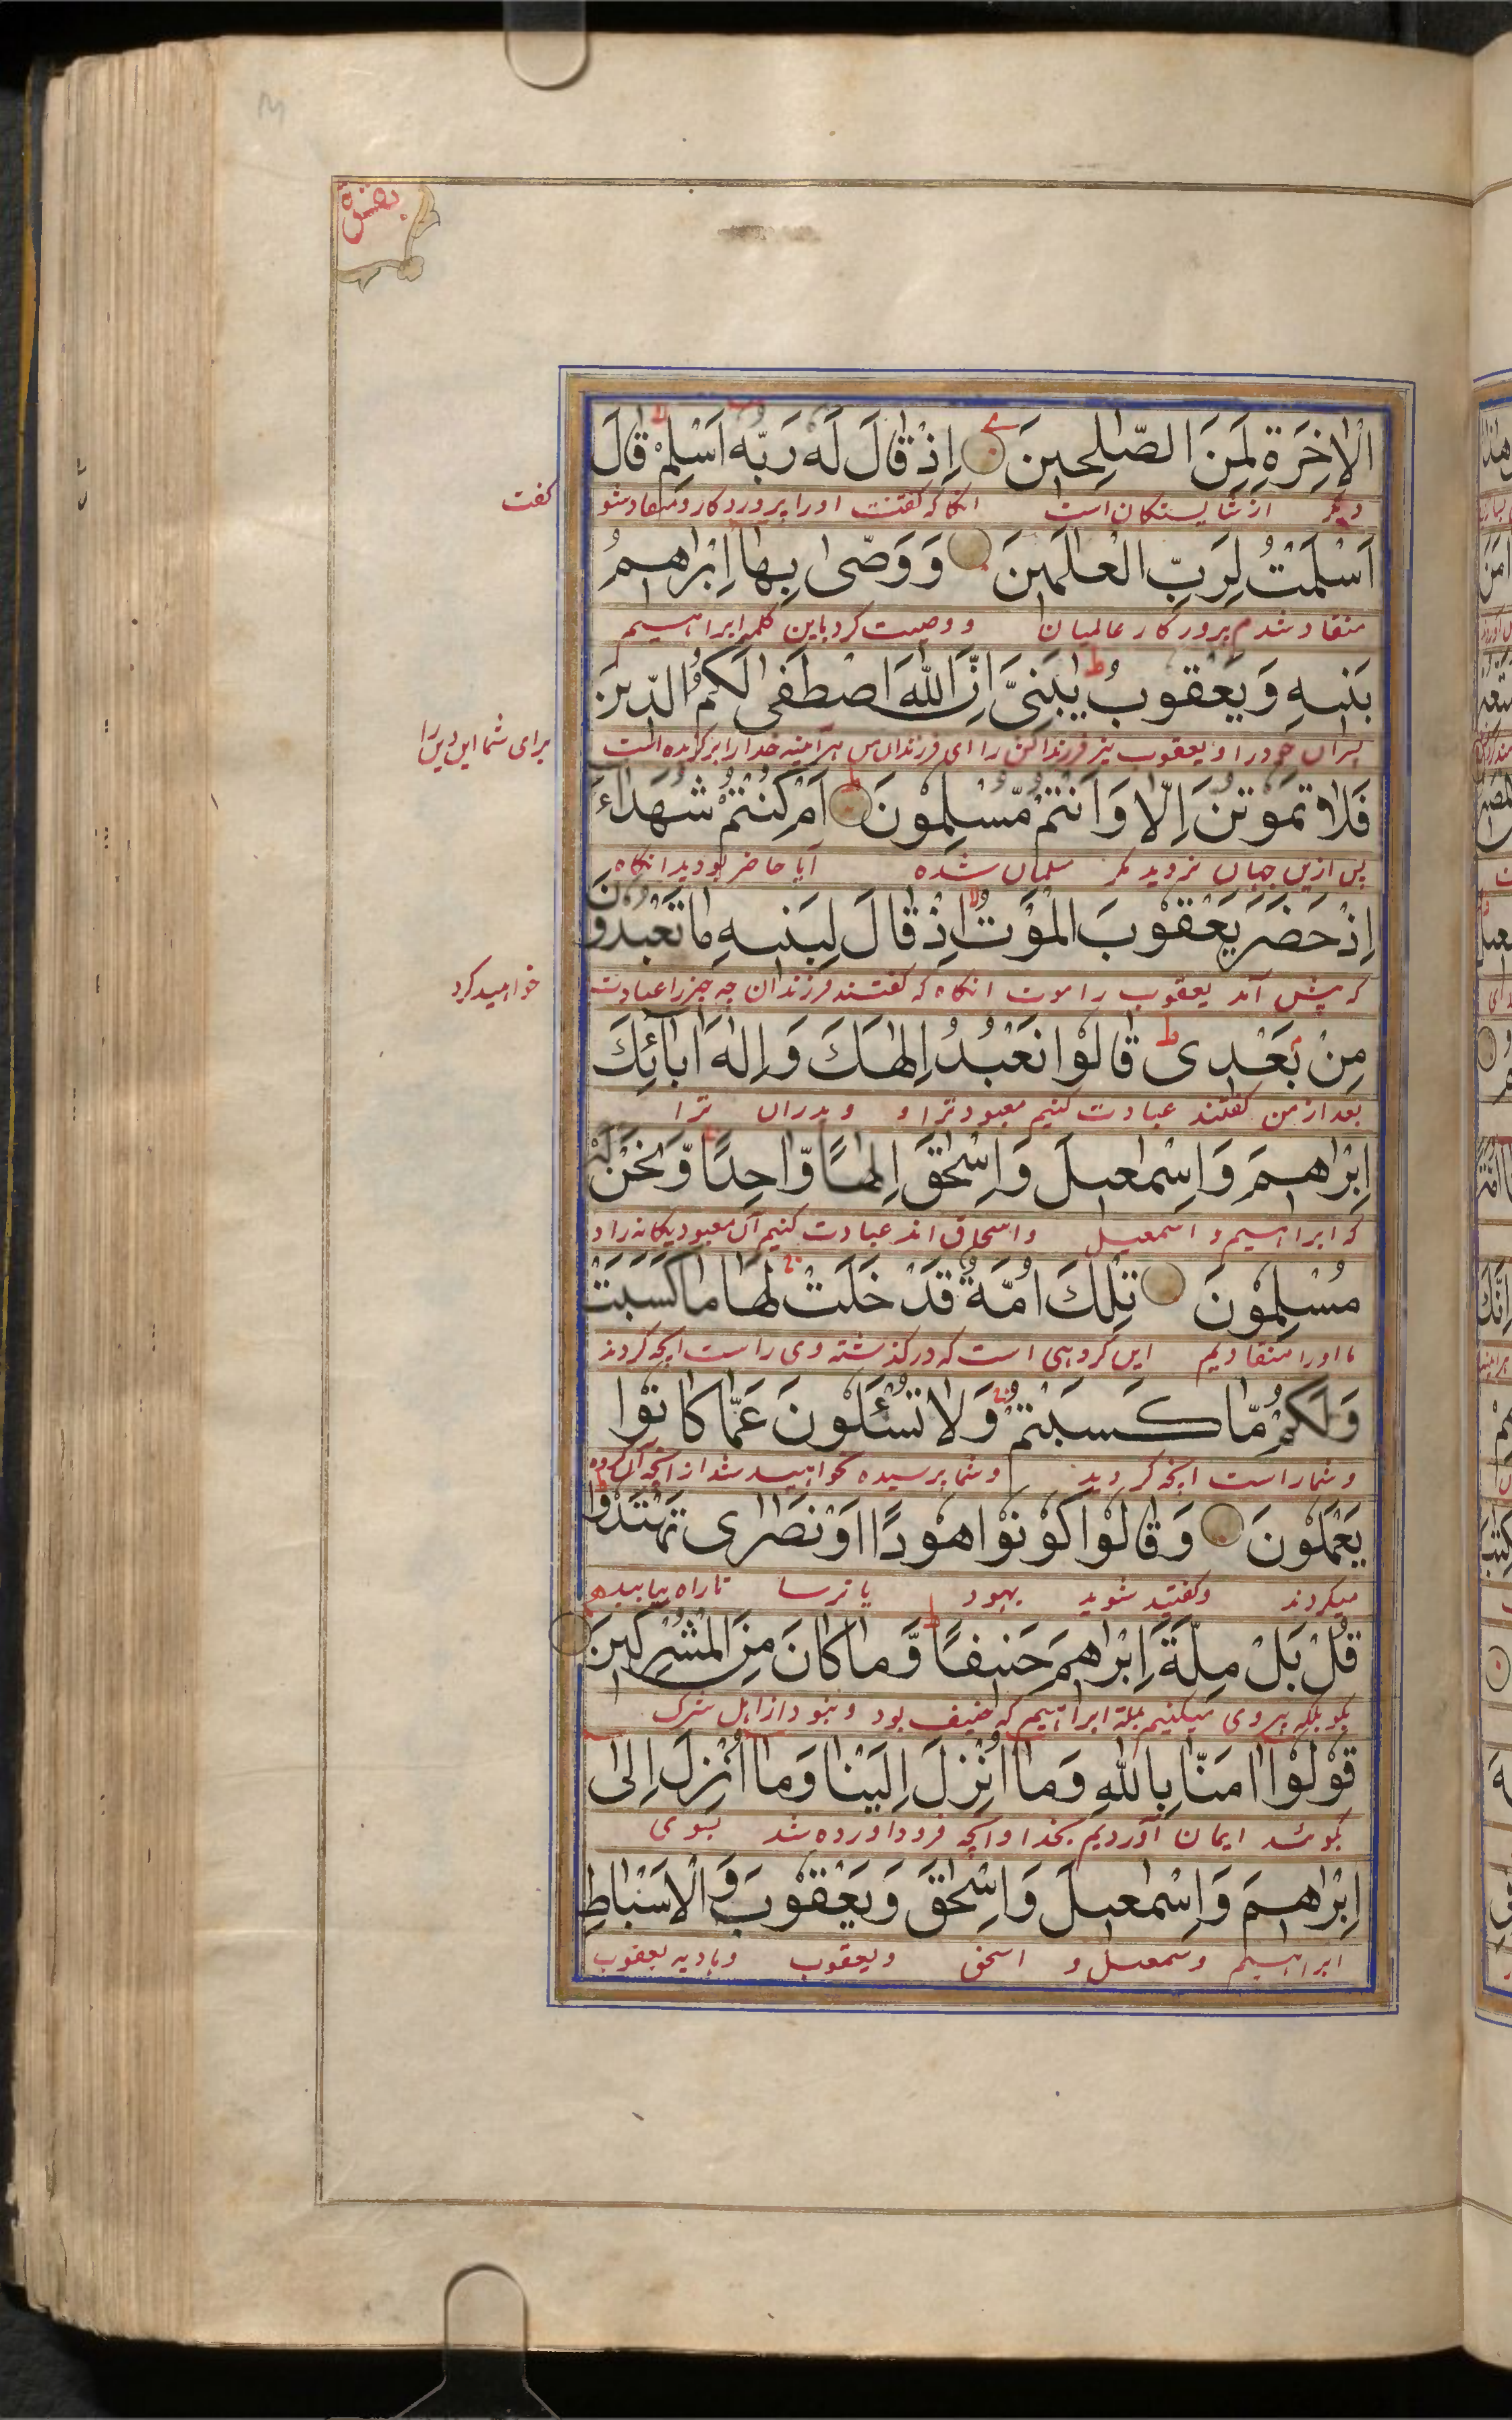 بقرة
الْاٰخِرَةِ لَمِنَ الصّٰلِحِينَ اِذْ قَالَ لَهُ رَبُّهُ اَسْلِمْ قَالَ
دیگر از شایستگان است انگاه که گفتش اورا پروردگار و منقاد شو گفت
اَسْلَمْتُ لِرَبِّ الْعٰلَمِينَ وَوَصّٰى بِهَا اِبْرٰهٖمُ
منقاد شدم پرورکار عالمیان و وصیت کرد باین کلمه ابراهیم
بَنِيهِ وَيَعْقُوبُ يٰبَنِيَّ اِنَّ اللّٰهَ اصْطَفٰى لَكُمُ الدِّينَ
پسران خود را و یعقوب نیز فرزندانش را ای فرزندان من هرآئینه خدا را برگزیده است برای شما این دین را
فَلَا تَمُوتُنَّ اِلَّا وَاَنْتُمْ مُّسْلِمُونَ اَمْ كُنْتُمْ شُهَدَاءَ
پس ازین جهان نروید مگر مسلمان شده آیا حاضر بودید انگاه
اِذْ حَضَرَ يَعْقُوبَ الْمَوْتُ اِذْ قَالَ لِبَنِيهِ مَا تَعْبُدُونَ
که پیش آمد یعقوب را موت انگاه که گفت فرزندان چه چیز را عبادت خواهید کرد
مِنْ بَعْدِى قَالُوا نَعْبُدُ اِلٰهَكَ وَاِلٰهَ اٰبَائِكَ
بعد از من گفتند عبادت کنیم معبود ترا و و پدران ترا
اِبْرٰهٖمَ وَاِسْمٰعِيلَ وَاِسْحٰقَ اِلٰهًا وَّاحِدًا وَّنَحْنُ لَهُ
که ابراهیم و اسمعیل و اسحاق اند عبادت کنیم آن معبود یگانه را و
مُسْلِمُونَ تِلْكَ اُمَّةٌ قَدْ خَلَتْ لَهَا مَا كَسَبَتْ
ما اورا منقادیم این گروهی است که درگذشته وی راست انچه کردند
وَلَكُمْ مَّا كَسَبْتُمْ وَلَا تُسْئَلُونَ عَمَّا كَانُوا
و شما راست انچه کردید و شما پرسیده نخواهید شد از انچه آن گروه
يَعْمَلُونَ وَقَالُوا كُونُوا هُودًا اَوْ نَصٰرٰى تَهْتَدُوا
میکردند و گفتند شوید یهود یا ترسا تا راه یابید
قُلْ بَلْ مِلَّةَ اِبْرٰهٖمَ حَنِيفًا وَّمَا كَانَ مِنَ الْمُشْرِكِينَ
بگو بلکه پیروی میکنیم ملة ابراهیم که حنیف بود و نبود از اهل شرک
قُولُوا اٰمَنَّا بِاللّٰهِ وَمَا اُنْزِلَ اِلَيْنَا وَمَا اُنْزِلَ اِلٰى
بگوئید ایمان آوردیم بخدا و انچه فرود اورده شد بسوی
اِبْرٰهٖمَ وَاِسْمٰعِيلَ وَاِسْحٰقَ وَيَعْقُوبَ وَالْاَسْبَاطِ
ابراهیم و سمعیل و اسحق و یعقوب یعقوب